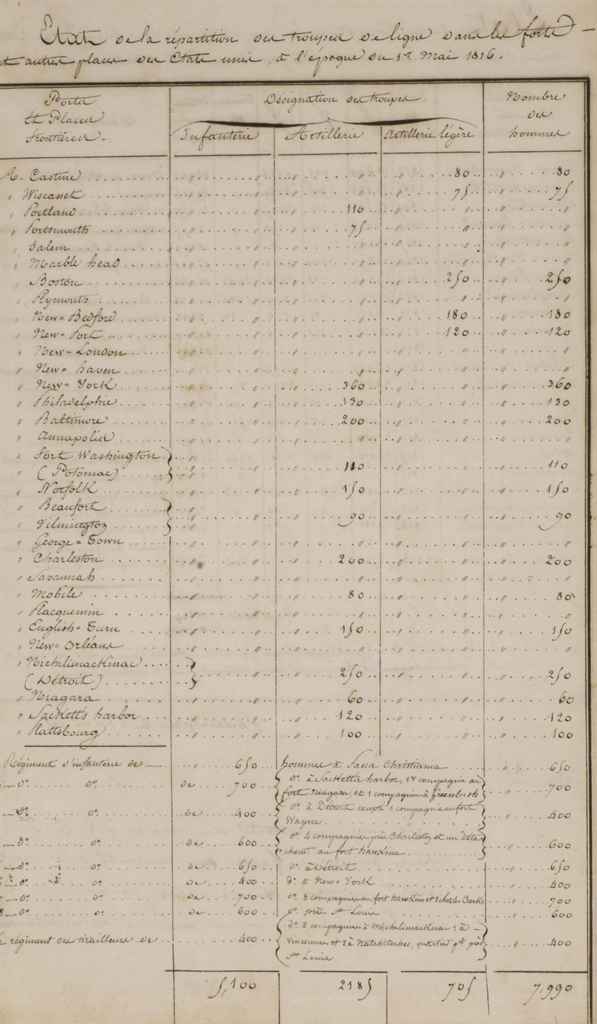 Etat de la répartition des troupes de ligne dans les forts
et autres places des Etats unis, à l'époque du 1er Mai 1816.
Ports et Places frontières.
Désignation des troupes
Nombre des hommes
Infanterie
Artillerie
Artillerie légère
Castine 80 80
Wiscasset 75 75
Portland 110
Portsmouth 75
Salem
Marble head
Boston 250 250
Plymouth
New-Bedford 180 180
New-Port 120 120
New-London
New-haven
New-York 360 360
Philadelphie 130 130
Baltimore 200 200
Annapolis
Fort Washington
(Potomac) 110 110
Norfolk 150 150
Beaufort
Wilmington 90 90
George-Town
Charleston 200 200
Savannah
Mobile 80 80
Placquemin
English-Turn 150 150
New-Orléans
Michilimackinac
(Détroit) 250 250
Niagara 60 60
Sackett's harbor 120 120
Plattsbourg 100 100
Régiment d'infanterie de 650 hommes 650
do. do. de 700 do. à Sacketts harbor, 1 compagnie au
fort Niagara, et 1 compagnie à 700
do. do. de 400 do. à Détroit excepté 1 compagnie au fort
Wayne 400
do. do. de 600 do. 4 compagnies près Charleston et un détachement
au fort Hawkins 600
do. do. de 650 do. à Détroit 650
do. do. de 400 do. à New-York 400
do. do. de 700 do. compagnies au fort Hawkins et 700
do. do. de 600 do. près St Louis 600
régiment des tirailleurs de 400 do. 2 compagnies à Michilimackinac 1 à
Vincennes et 2 à Natchitoches, près
St Louis 400
5,100 2185 705 7,990